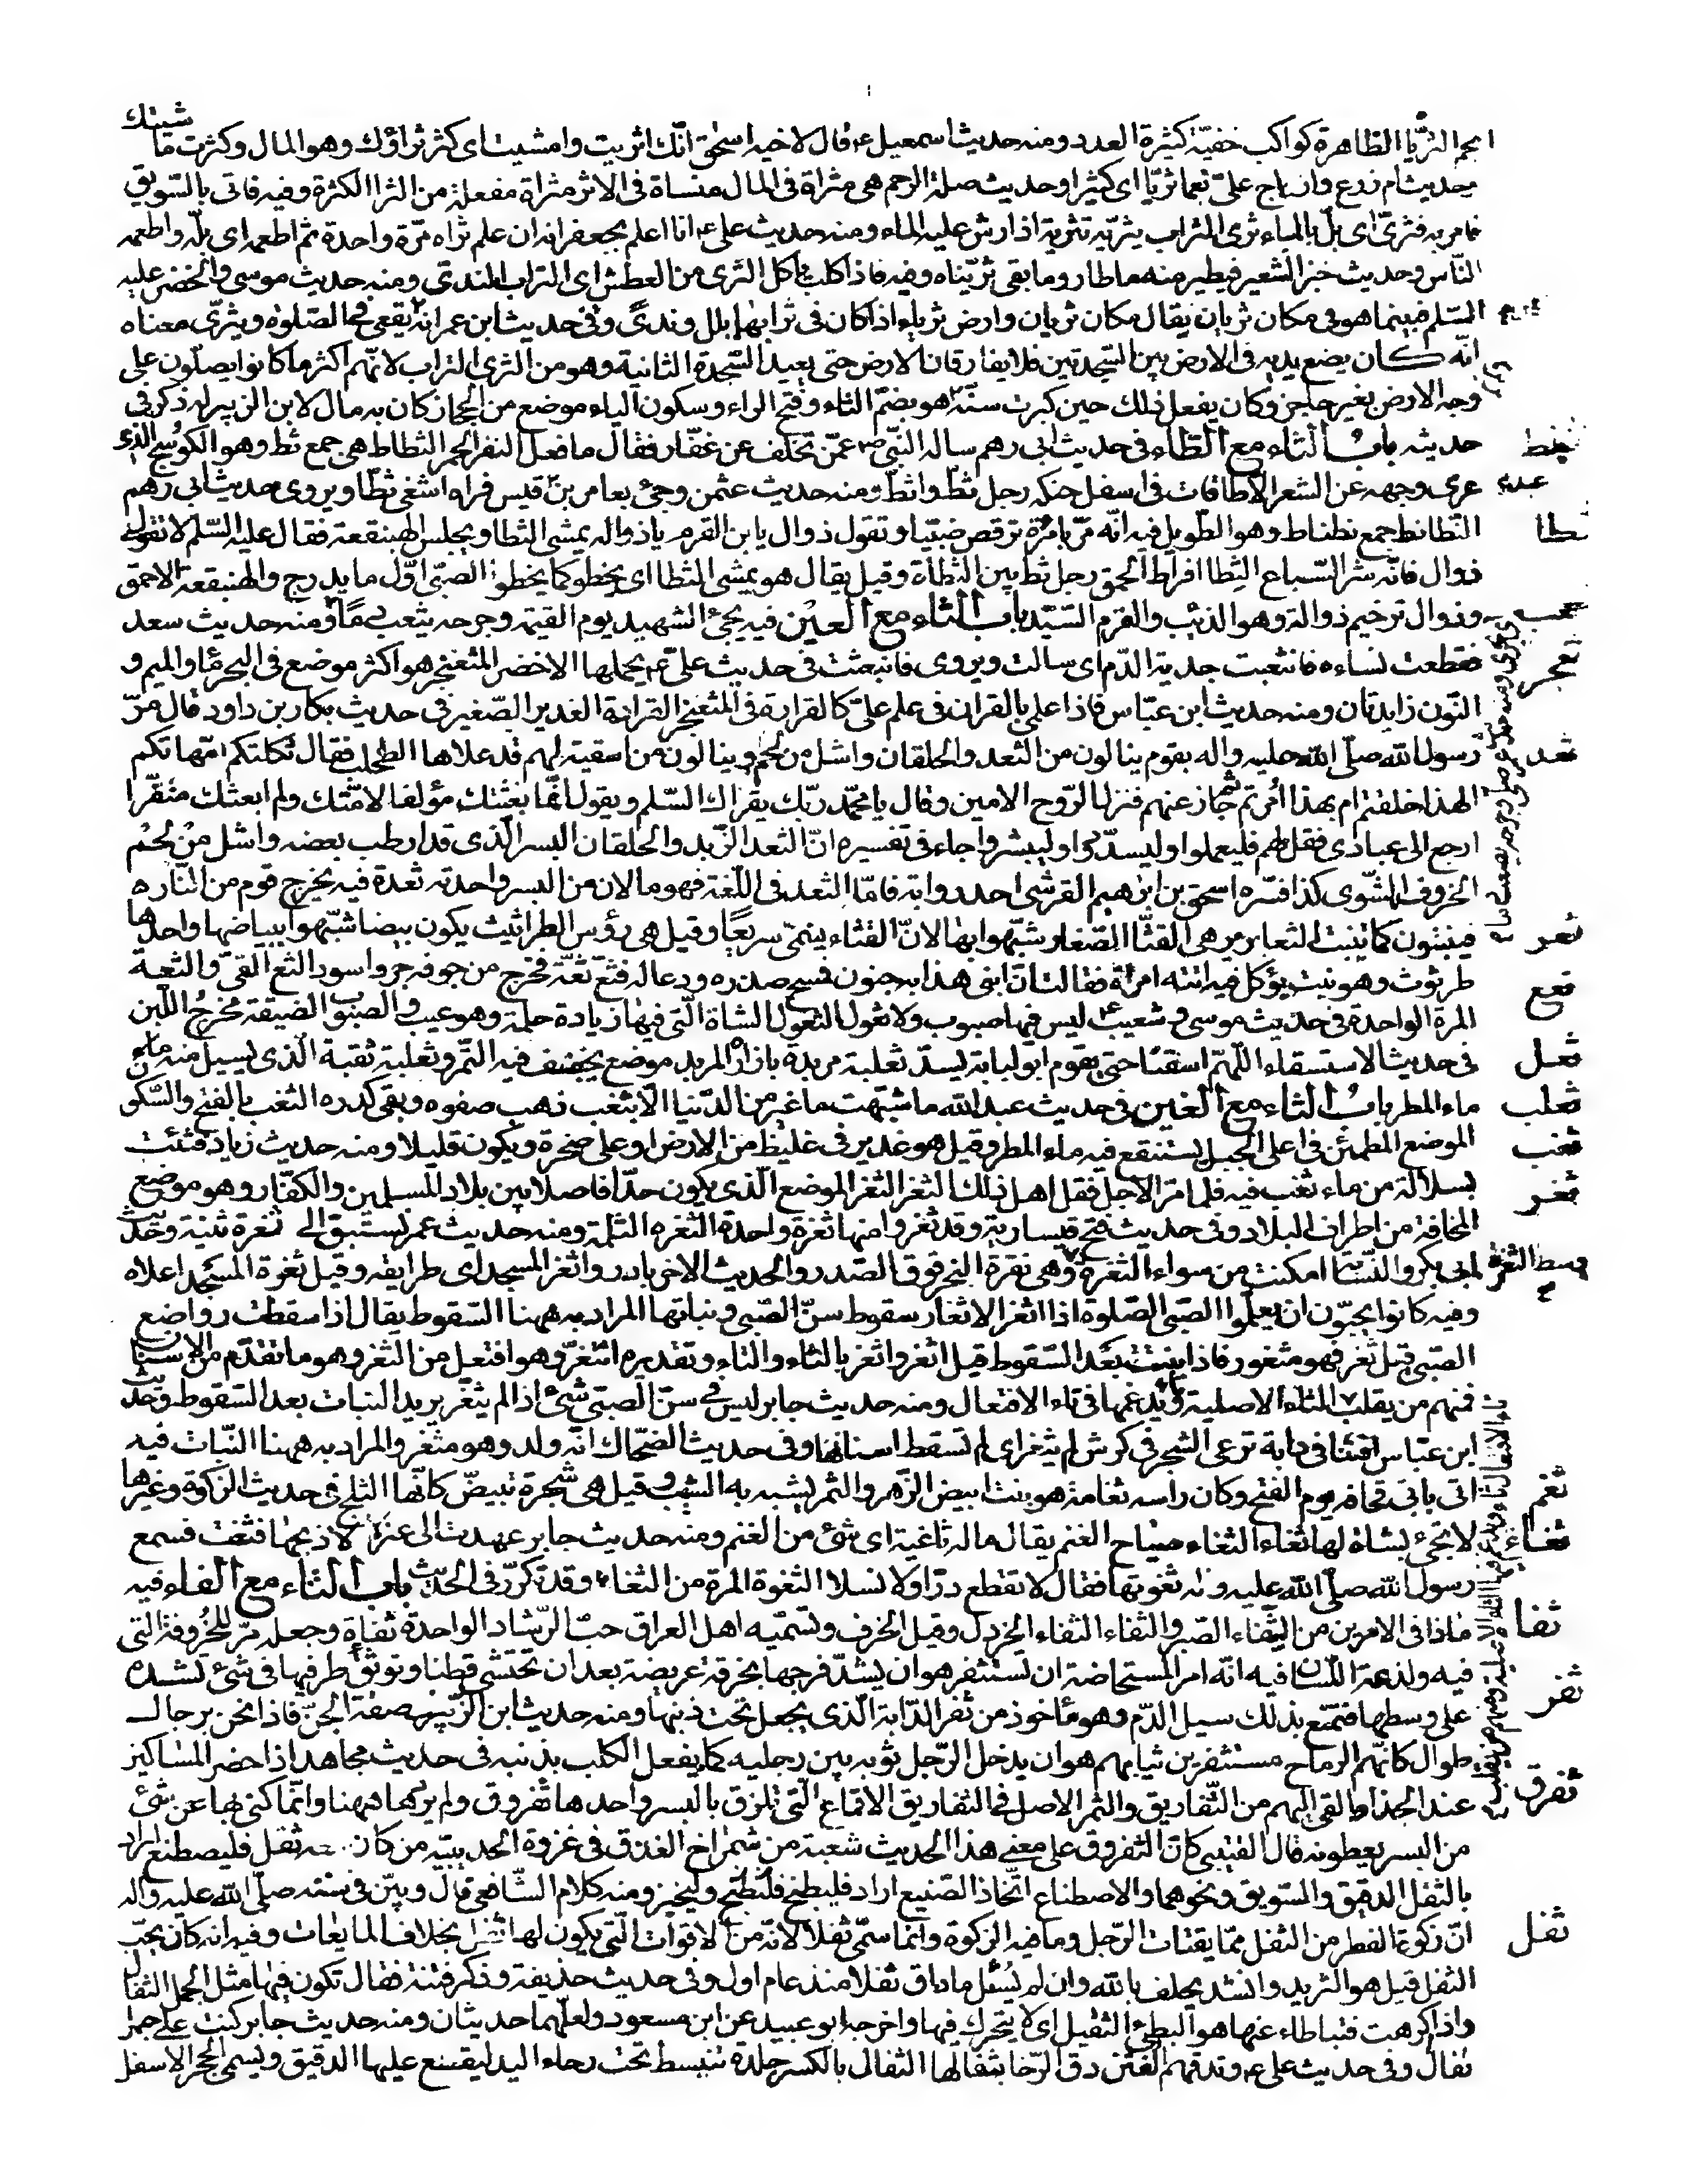 انجم الثريّا الظاهرة كواكب خفيّة كثيرة العدد ومنه حديث اسمعيل ع قال لاخيه اسحق انّك اثريت وامشيت اى كثر ثراؤك وهو المال وكثرت ماشيتك
حديث ام زرع واراح علىّ نعما ثريّا اى كثيرا وحديث صلة الرحم هى مثراة فى المال منساة فى الاثر مثراة مفعلة من الثرا الكثرة وفيه فاتى بالسّويق
فامر به فثرّى اى بلّ بالماء ثرى التراب يثرّيه تثرية اذا رش عليه الماء ومنه حديث على ع انا اعلم بجعفر انه ان علم ثراه مرّة واحدة ثم اطعمه اى بلّه واطعمه
النّاس وحديث خبز الشعير فيطير منه ما طار وما بقى ثريّناه وفيه فاذا كلب ياكل الثرى من العطش اى التراب الندى ومنه حديث موسى والخضر عليه
السّلم فبينما هو فى مكان ثريان يقال مكان ثريان وارض ثرياء اذا كان فى ترابهما بلل وندى وفى حديث ابن عمر انه يقعى فى الصّلوة ويثرّى معناه
انّه كان يضع يديه فى الارض بين السّجدتين فلا يفارقان الارض حتى يعيد السّجدة الثانية وهو من الثرى التراب لانهم اكثر ما كانوا يصلّون على
وجه الارض بغير حاجز وكان يفعل ذلك حين كبرت سنّه هو بضمّ الثاء وفتح الراء وسكون الياء موضع من الحجاز كان به مال لابن الزبير له ذكر فى
حديثه باب الثاء مع الطاء فى حديث ابى رهم ساله النبّى ص عمّن تخلف عن غفار فقال ما فعل النفر الحمر الثطاط هى جمع ثط وهو الكوسج الذى
عرى وجهه عن الشعر الا طاقات فى اسفل حنكه رجل ثطّ واثطّ ومنه حديث عثمن وجئ بعامر بن قيس فراه اشغى ثطا ويروى حديث ابى رهم
النّطانط جمع نطناط وهو الطّويل فيه انّه مرّ بامرأة ترقص صبيّا وتقول ذوال يا ابن القرم يا ذواله يمشى الثطا ويجلس الهبنقعة فقال عليه السّلم لا تقولى
ذوال فانّه شرّ السّباع الثطا افراط الحمق رجل ثط بين الثطاة وقيل يقال هو يمشى الثطا اى يخطو كما يخطو الصبّى اوّل ما يدرج والهبنقعة الاحمق
وذوال ترخيم ذوالة وهو الذئب والقرم السّيّد باب الثاء مع العين فيه يجئ الشهيد يوم القيمة وجرحه يثعب دمًا ومنه حديث سعد
فقطعت نساءه فانثعبت جدية الدّم اى سالت ويروى فانبعثت فى حديث علىّ ع يحملها الاخضر المثعنجر هو اكثر موضع فى البحر ماء والميم و
النّون زايدتان ومنه حديث ابن عبّاس فاذا علمى بالقران فى علم علىّ كالقرارة فى المثعنجر القرارة الغدير الصّغير فى حديث بكار بن داود قال مرّ
رسول الله صلّى الله عليه واله بقوم ينالون من الثعد والحلقان واشل من لحم وينالون من اسقية لهم قد علاها الطحلب فقال ثكلتكم امّهاتكم
الهذا خلقتم ام بهذا امرتم ثم جاز عنهم فنزل الرّوح الامين وقال يا محمّد ربّك يقراك السّلم ويقول انما بعثتك مؤلفا لامّتك ولم ابعثك منفّرا
ارجع الى عبادى فقل لهم فليعملوا وليسدّدوا وليبشروا جاء فى تفسيره انّ الثعد الزّبد والحلقان البسر الّذى قد ارطب بعضه واشل من لحم
الخروف المشوى كذا فسّره اسحق بن ابرهيم القرشى احد رواته فامّا الثعد فى اللّغة فهو ما لان من البسر واحدته ثعدة فيه يخرج قوم من النّار
فينبتون كما تنبت الثعارير هى القثّا الصّغار شبّهوا بها لانّ القثاء ينمى سريعًا وقيل هى رؤس الطراثيث يكون بيضا شبّهوا ببياضها واحدها
طرثوث وهو نبت يؤكل فيه اتته امرأة فقالت انّ ابنى هذا به جنون فمسح صدره ودعا له فثعّ ثعّة فخرج من جوفه جرو اسود الثع القىّ والثعة
المرة الواحدة فى حديث موسى وشعيب ع ليس فيها ضبوب ولا ثعول الثعول الشاة الّتى فيها زيادة حلمة وهو عيب والضبوب الضيقة مخرج اللّبن
فى حديث الاستسقاء اللّهمّ اسقنا حتى يقوم ابو لبابة يسدّ ثعلب مربده بازاره المربد موضع يجفف فيه التّمر وثعلبه ثقبه الّذى يسيل منه ماء
ماء المطر باب الثاء مع الغين فى حديث عبد الله ما شبّهت ما غبر من الدّنيا الا بثغب ذهب صفوه وبقى كدره الثغب بالفتح والسّكون
الموضع المطمئن فى اعلى الجبل يستنقع فيه ماء المطر وقيل هو غدير فى غليظ من الارض او على صخرة ويكون قليلا ومنه حديث زياد فثئت
بسلالة من ماء ثغب فيه فلما مرّ الاجل قفل اهل ذلك الثغر الثغر الموضع الّذى يكون حدّا فاصلا بين بلاد المسلمين والكفّار وهو موضع
المخافة من اطراف البلاد وفى حديث فتح قيسارية وقد ثغروا منها ثغرة واحدة الثغرة الثلمة ومنه حديث عمر تستبق الى ثغرة ثنية وحديث
ابى بكر والنّسّابة امكنت من سواء الثغرة وهى نقرة النحر فوق الصّدر والحديث الاخر بادروا ثغر المسجد اى طرايقه وقيل ثغرة المسجد اعلاه
وفيه كانوا يحبّون ان يعلّموا الصّبى الصّلوة اذا اثغر الاثغار سقوط سنّ الصّبى ونباتها المراد به ههنا السّقوط يقال اذا سقطت رواضع
الصبّى قيل ثغر فهو مثغور فاذا نبتت بعد السّقوط قيل اثغر واثغر بالثاء والتاء وتقديره اثتغر وهو افتعل من الثغر وهو ما تقدّم من الاسنان
فمنهم من يقلب الثاء الاصلية ويدغمها فى تاء الافتعال ومنه حديث جابر ليس فى سنّ الصّبى شئ اذا لم يثغر يريد النبات بعد السّقوط وحديث
ابن عبّاس افتنا فى دابة ترعى الشجر فى كرش لم تثغر اى لم تسقط اسنانها وفى حديث الضحّاك انّه ولد وهو مثغر والمراد به ههنا النّبات فيه
اتى بابى قحافة يوم الفتح وكان راسه ثغامة هو نبت ابيض الزّهر والثمر يشبه به الشيب وقيل هى شجرة تبيضّ كانّها الثلج فى حديث الزكوة وغيرها
لا تجئ بشاة لها ثغاء الثغاء صياح الغنم يقال ماله ثاغية اى شئ من الغنم ومنه حديث جابر عمدت الى عنز لاذبحها فثغت فسمع
رسول الله صلّى الله عليه واله ثغوتها فقال لا تقطع درّا ولا نسلا الثغوة المرة من الثغاء وقد تكرّر فى الحديث باب الثاء مع الفاء فيه
ماذا فى الامرين من الثّفاء الصّبر والثفاء الثفاء الخردل وقيل الحرف وتسمّيه اهل العراق حبّ الرّشاد الواحدة ثفاءة وجعله مرّ للحروفة التى
فيه ولذعه اللسان فيه انّه امر المستحاضة ان تستثفر هو ان يشدّ فرجها بخرقة عريضة بعد ان تحتشى قطنا وتوثق طرفيها فى شئ تشده
على وسطها فتمنع بذلك سيل الدّم وهو ماخوذ من ثفر الدّابة الّذى يجعل تحت ذنبها ومنه حديث ابن الزّبير صفة الجنّ فاذا نحن برجال
طوال كانّهم الرماح مستثفرين ثيابهم هو ان يدخل الرّجل ثوبه بين رجليه كما يفعل الكلب بذنبه فى حديث مجاهد اذا حضر المساكين
عند الجذاذ القى اليهم من الثّفاريق والتمر الاصل فى الثفاريق الاقماع الّتى تلزق بالبسر واحدها ثفروق ولم يردها ههنا وانّما كنى بها عن شئ
من البسر يعطونه قال القتيبى كانّ الثفروق على معنى هذا الحديث شعبة من شمراخ العذق فى غزوة الحديبيّه من كان معه ثفل فليصطنع اراد
بالثفل الدقيق والسّويق ونحوهما والاصطناع اتّخاذ الصّنيع اراد فليطبخ وليخبز ومنه كلام الشّافعى قال وبيّن فى سنته صلّى الله عليه واله
انّ زكوة الفطر من الثفل ممّا يقتات الرّجل وما فيه الزكوة وانّما سمّى ثفلا لانّه من الاقوات الّتى يكون لها ثفل بخلاف المايعات وفيه انه كان يحبّ
الثفل قيل هو الثريد وانشد يحلف بالله وان لم يُسئل ما ذاق ثفلا منذ عام اول وفى حديث حذيفة وذكر فتنة فقال تكون فيها مثل الجمل الثفال
واذا كرهت فتباطاء عنها هو البطئ الثقيل اى لا يتحرك فيها واخرجه ابو عبيد عن ابن مسعود ولعلّهما حديثان ومنه حديث جابر كنت على جمل
ثفال وفى حديث على ع وتدقهم الفتن دق الرّحا بثفالها الثفال بالكسر جلدة تبسط تحت رحاء اليد ليقع عليها الدقيق ويسمى الحجر الاسفل
ثطط
ثطا
ثعب
ثعجر
ثعد
ثعر
ثعع
ثعل
ثعلب
ثغب
ثغر
ثغم
ثغا
ثفا
ثفر
ثفرق
ثفل